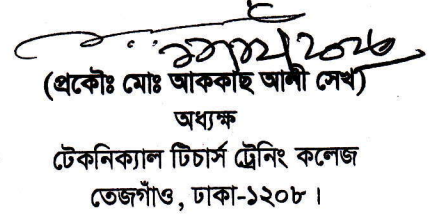 (প্রকৌঃ মোঃ আককাছ আলী সেখ)
অধ্যক্ষ
টেকনিক্যাল টিচার্স ট্রেনিং কলেজ
তেজগাঁও, ঢাকা-১২০৮।